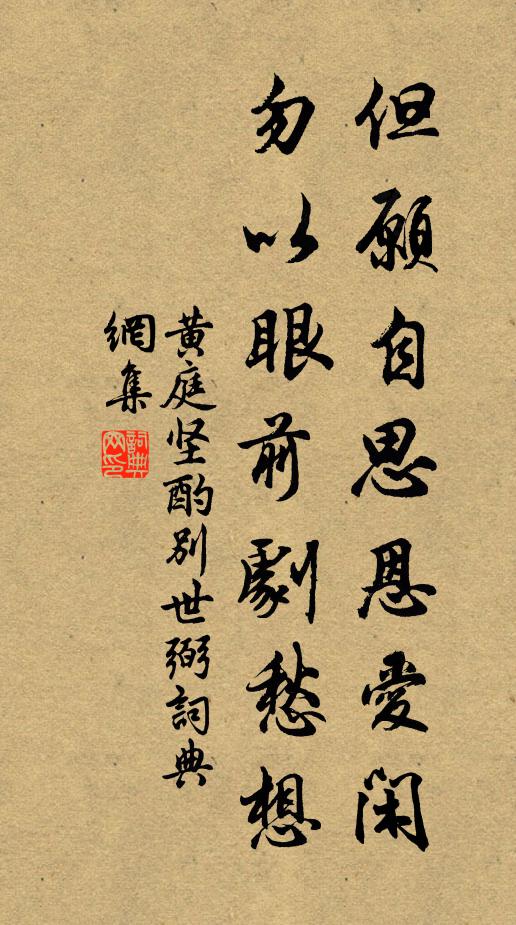 但願自思恩愛閑
勿以眼前劇愁想
黄庭坚酌别世弼詞典
網集
詞典网印